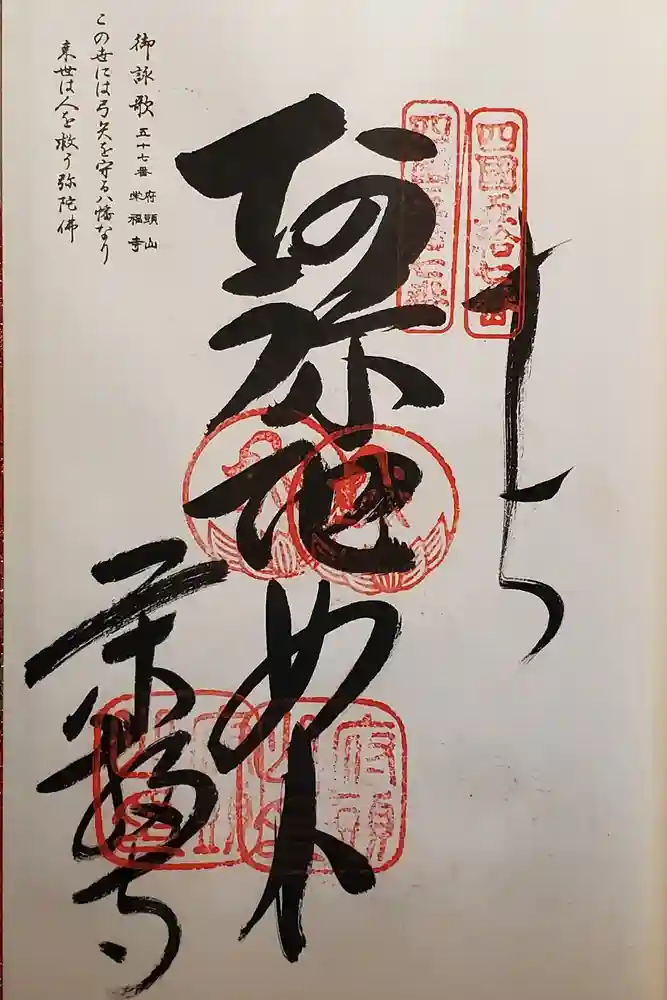 奉納
四國五拾七番
阿弥陀如来
栄福寺
府頭山
御詠歌 五十七番 府頭山 栄福寺
この世には弓矢を守る八幡なり
来世は人を救う弥陀佛